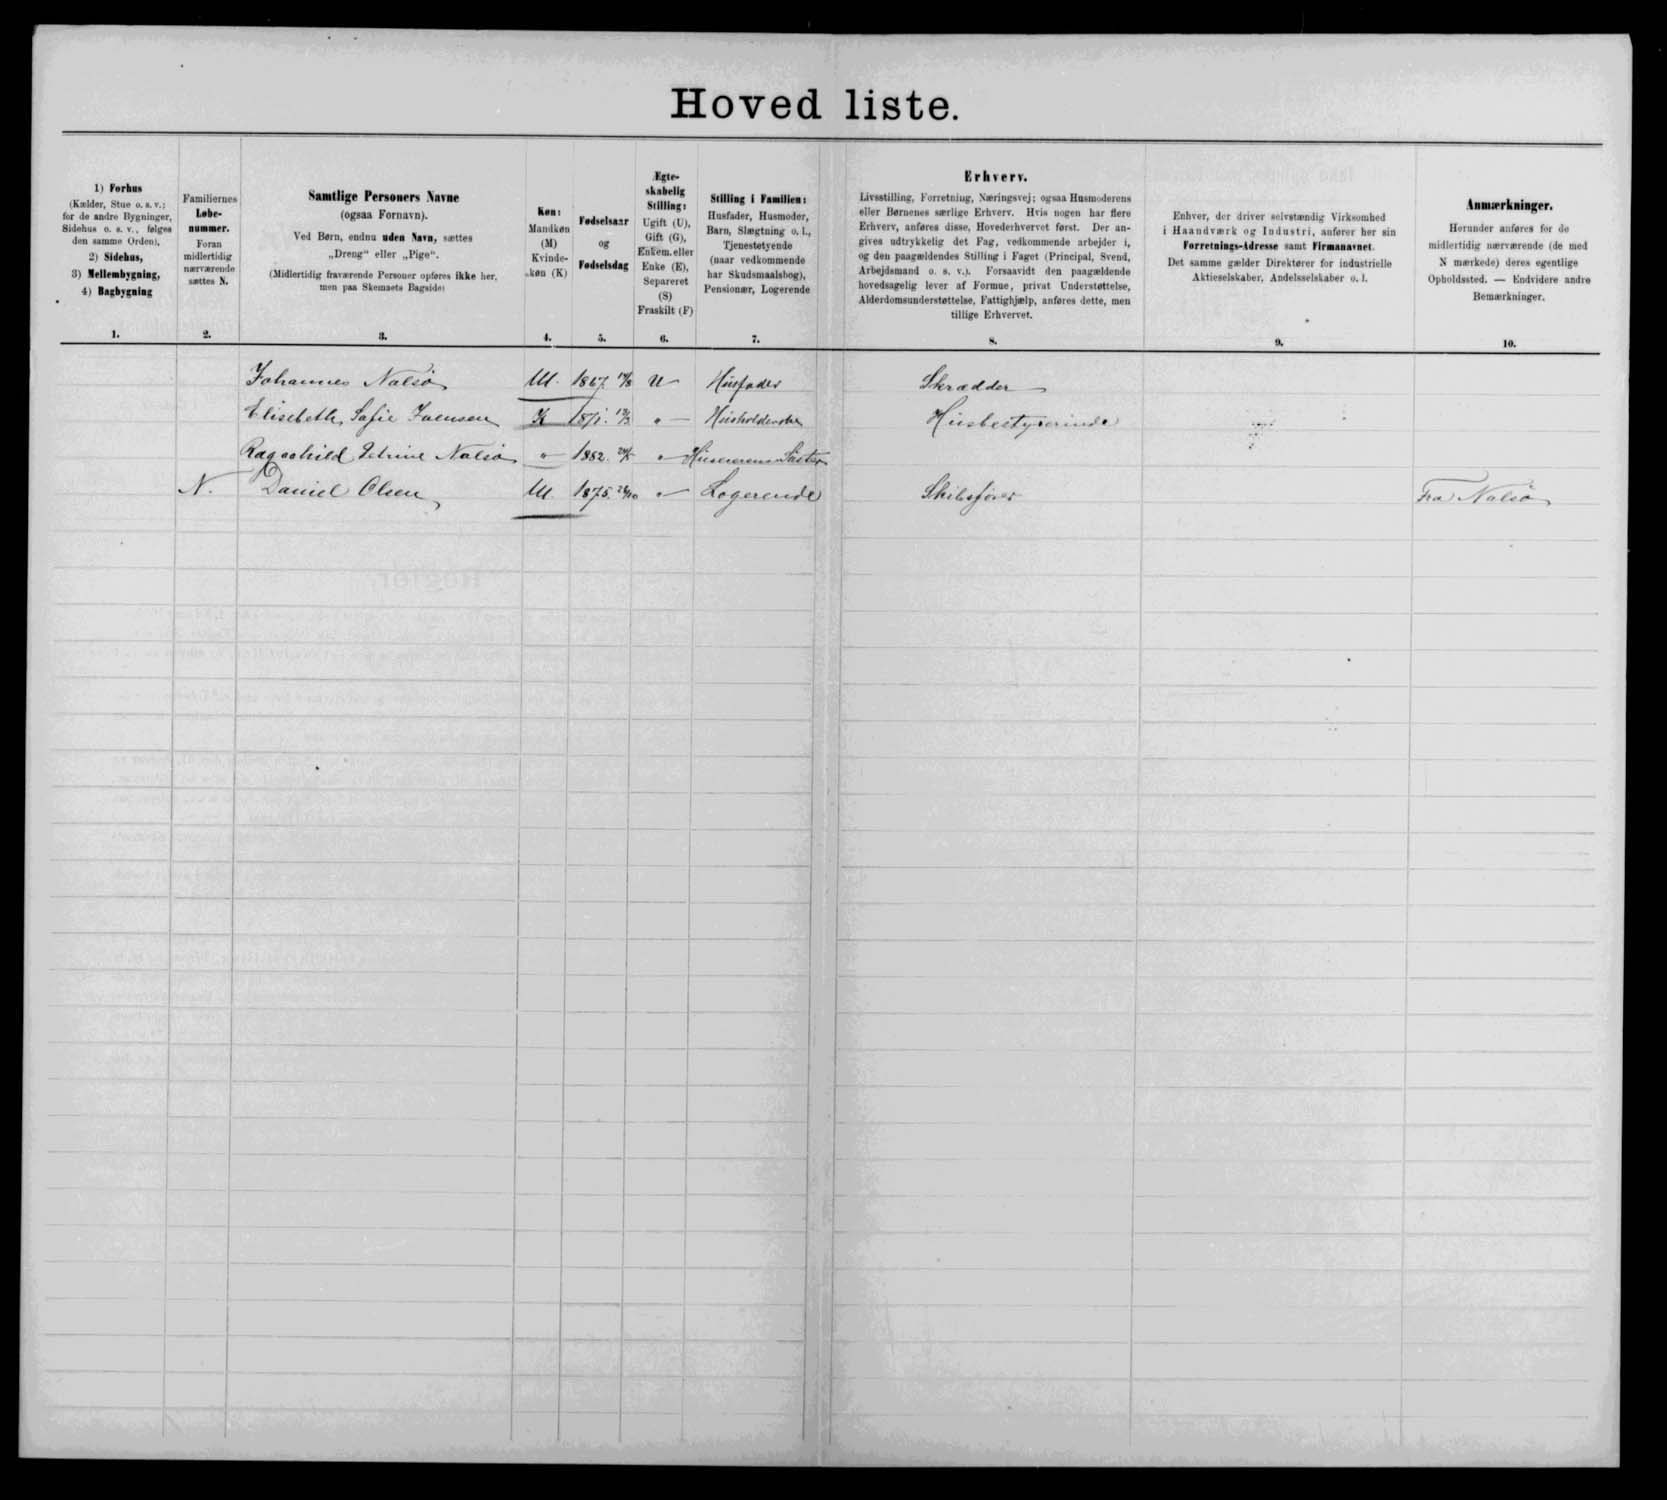 Hoved liste.
1) Forhus
(Kælder, Stue o. s. v.;
for de andre Bygninger,
Sidehus o. s. v., følges
den samme Orden),
2) Sidehus,
3) Mellembygning,
4) Bagbygning
1.
Familiernes
Løbe-
nummer.
Foran
midlertidig
nærværende
sættes N.
2.
Samtlige Personers Navne
(ogsaa Fornavn).
Ved Børn, endnu uden Navn, sættes
„Dreng“ eller „Pige“.
(Midlertidig fraværende Personer opføres ikke her,
men paa Skemaets Bagside)
3.
Køn:
Mandkøn
(M)
Kvinde-
køn (K)
4.
Fødselsaar
og
Fødselsdag
5.
Ægte-
skabelig
Stilling:
Ugift (U),
Gift (G),
Enkem. eller
Enke (E),
Separeret
(S)
Fraskilt (F)
6.
Stilling i Familien:
Husfader, Husmoder,
Barn, Slægtning o. l.,
Tjenestetyende
(naar vedkommende
har Skudsmaalsbog),
Pensionær, Logerende
7.
Erhverv.
Livsstilling, Forretning, Næringsvej; ogsaa Husmoderens
eller Børnenes særlige Erhverv. Hvis nogen har flere
Erhverv, anføres disse, Hovederhvervet først. Der an-
gives udtrykkelig det Fag, vedkommende arbejder i,
og den paagældendes Stilling i Faget (Principal, Svend,
Arbejdsmand o. s. v.). Forsaavidt den paagældende
hovedsagelig lever af Formue, privat Understøttelse,
Alderdomsunderstøttelse, Fattighjælp, anføres dette, men
tillige Erhvervet.
8.
Enhver, der driver selvstændig Virksomhed
i Haandværk og Industri, anfører her sin
Forretnings-Adresse samt Firmanavnet.
Det samme gælder Direktører for industrielle
Aktieselskaber, Andelsselskaber o. l.
9.
Anmærkninger.
Herunder anføres for de
midlertidig nærværende (de med
N mærkede) deres egentlige
Opholdssted. — Endvidere andre
Bemærkninger.
10.
Johannes Nolsø M. 1867 U Husfader Skrædder
Elisebeth Sofie Joensen K 1871 " Husholderske Husbestyrerinde
Ragnhild Nolsø " 1882 " Søster
N. Daniel Olsen M. 1875 " Logerende Skibsfører Fra Nolsø